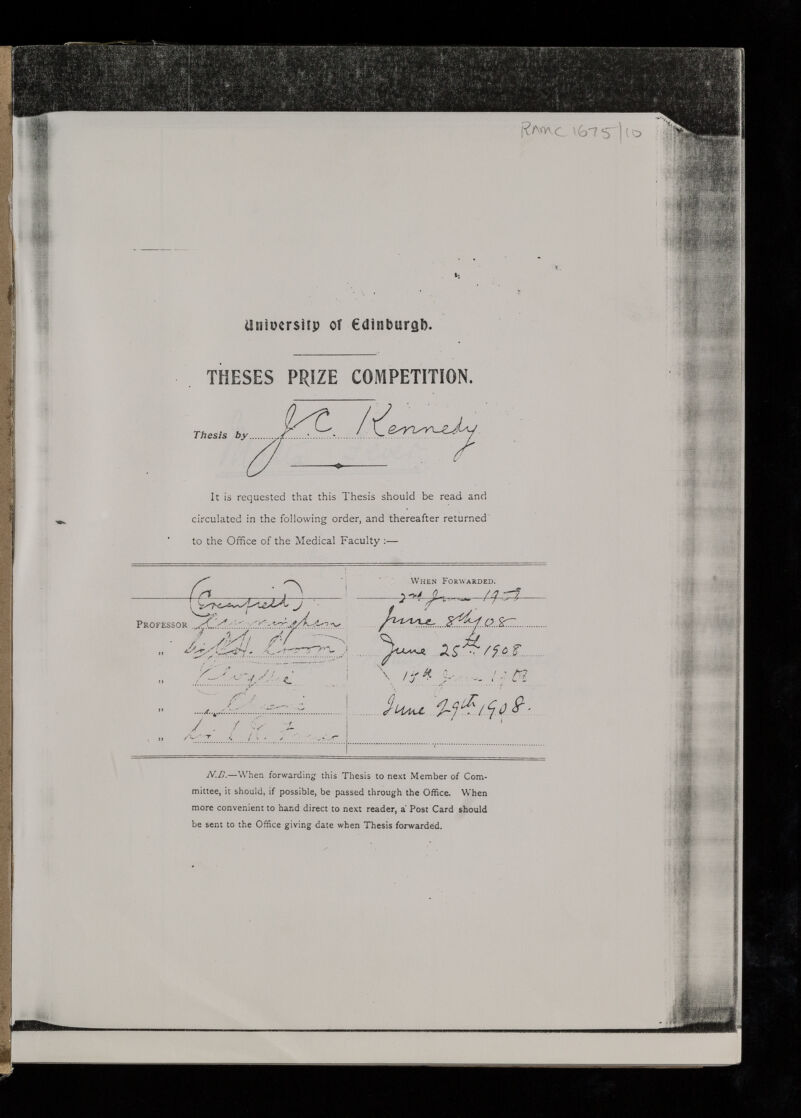 RAMC 1675/10
University of Edinburgh.
THESES PRIZE COMPETITION.
Thesis by J.C. Kennedy
It is requested that this Thesis should be read and
circulated in the following order, and thereafter returned
to the Office of the Medical Faculty :—
WHEN FORWARDED.
(Greenfield) 2nd June 1908
PROFESSOR Cunningham June 8th/08
„ June 25th 1908
„ Wyllie 15th June 1908
„ June 29th 1908.
„ Sir T. R. Fraser
N.B.—When forwarding this Thesis to next Member of Com-
mittee, it should, if possible, be passed through the Office. When
more convenient to hand direct to next reader, a Post Card should
be sent to the Office giving date when Thesis forwarded.